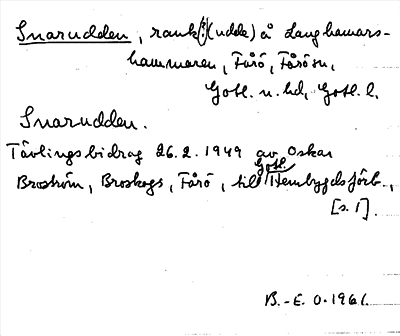 Snarudden, rauk(!)(udde) å Langhamars-
hammaren, Fårö, Fårö sn,
Gotl. n. hd, Gotl. l.
Snarudden.
Tävlingsbidrag 26.2.1949 av Oskar
Gotl.
Broström, Broskogs, Fårö, till Hembygdsförb.,
[s. 1].
B.-E. O. 1961.